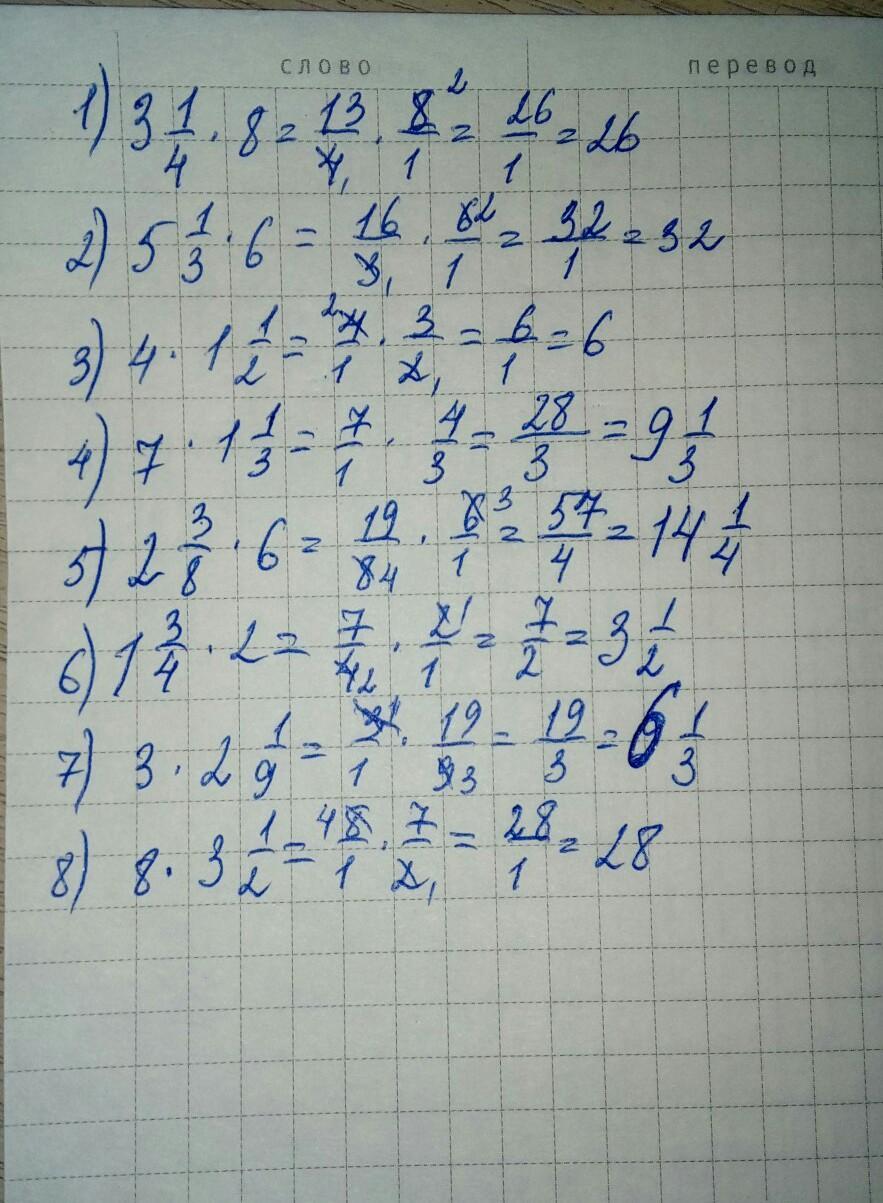 слово перевод
1) 3 1/4 · 8 = 13/4 1 · 8/1 2 = 26/1 = 26
2) 5 1/3 · 6 = 16/3 1 · 6/1 2 = 32/1 = 32
3) 4 · 1 1/2 = 2 4/1 · 3/2 1 = 6/1 = 6
4) 7 · 1 1/3 = 7/1 · 4/3 = 28/3 = 9 1/3
5) 2 3/8 · 6 = 19/8 4 · 6/1 3 = 57/4 = 14 1/4
6) 1 3/4 · 2 = 7/4 2 · 2/1 1 = 7/2 = 3 1/2
7) 3 · 2 1/9 = 3/1 1 · 19/9 3 = 19/3 = 6 1/3
8) 8 · 3 1/2 = 4 8/1 · 7/2 1 = 28/1 = 28